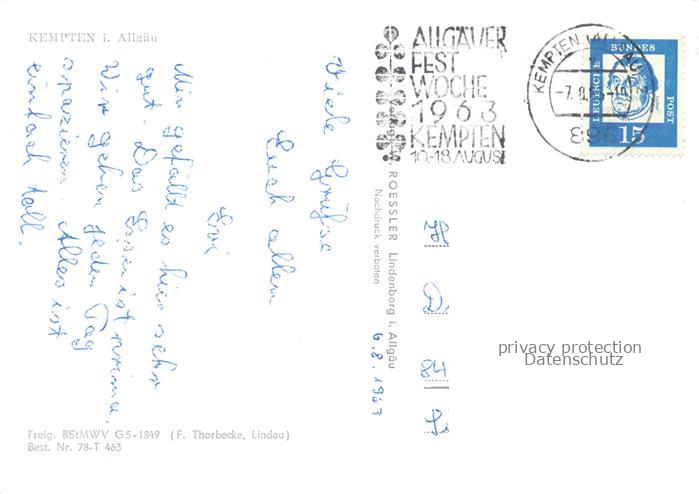 KEMPTEN i. Allgäu
Viele Grüße
Euch allen
Mir gefällt es hier sehr
gut. Das Essen ist prima.
Wir gehen jeden Tag
spazieren. Alles ist
einfach toll.
Freig. BStMWV G5-1849 (F. Thorbecke, Lindau)
Best. Nr. 78-T 463
ROESSLER Lindenberg i. Allgäu
Nachdruck verboten
6.8.1963
ALLGÄUER
FEST
WOCHE
1963
KEMPTEN
10-18 AUGUST
KEMPTEN (ALLGÄU)
DEUTSCHE
BUNDES
POST
15
privacy protection
Datenschutz